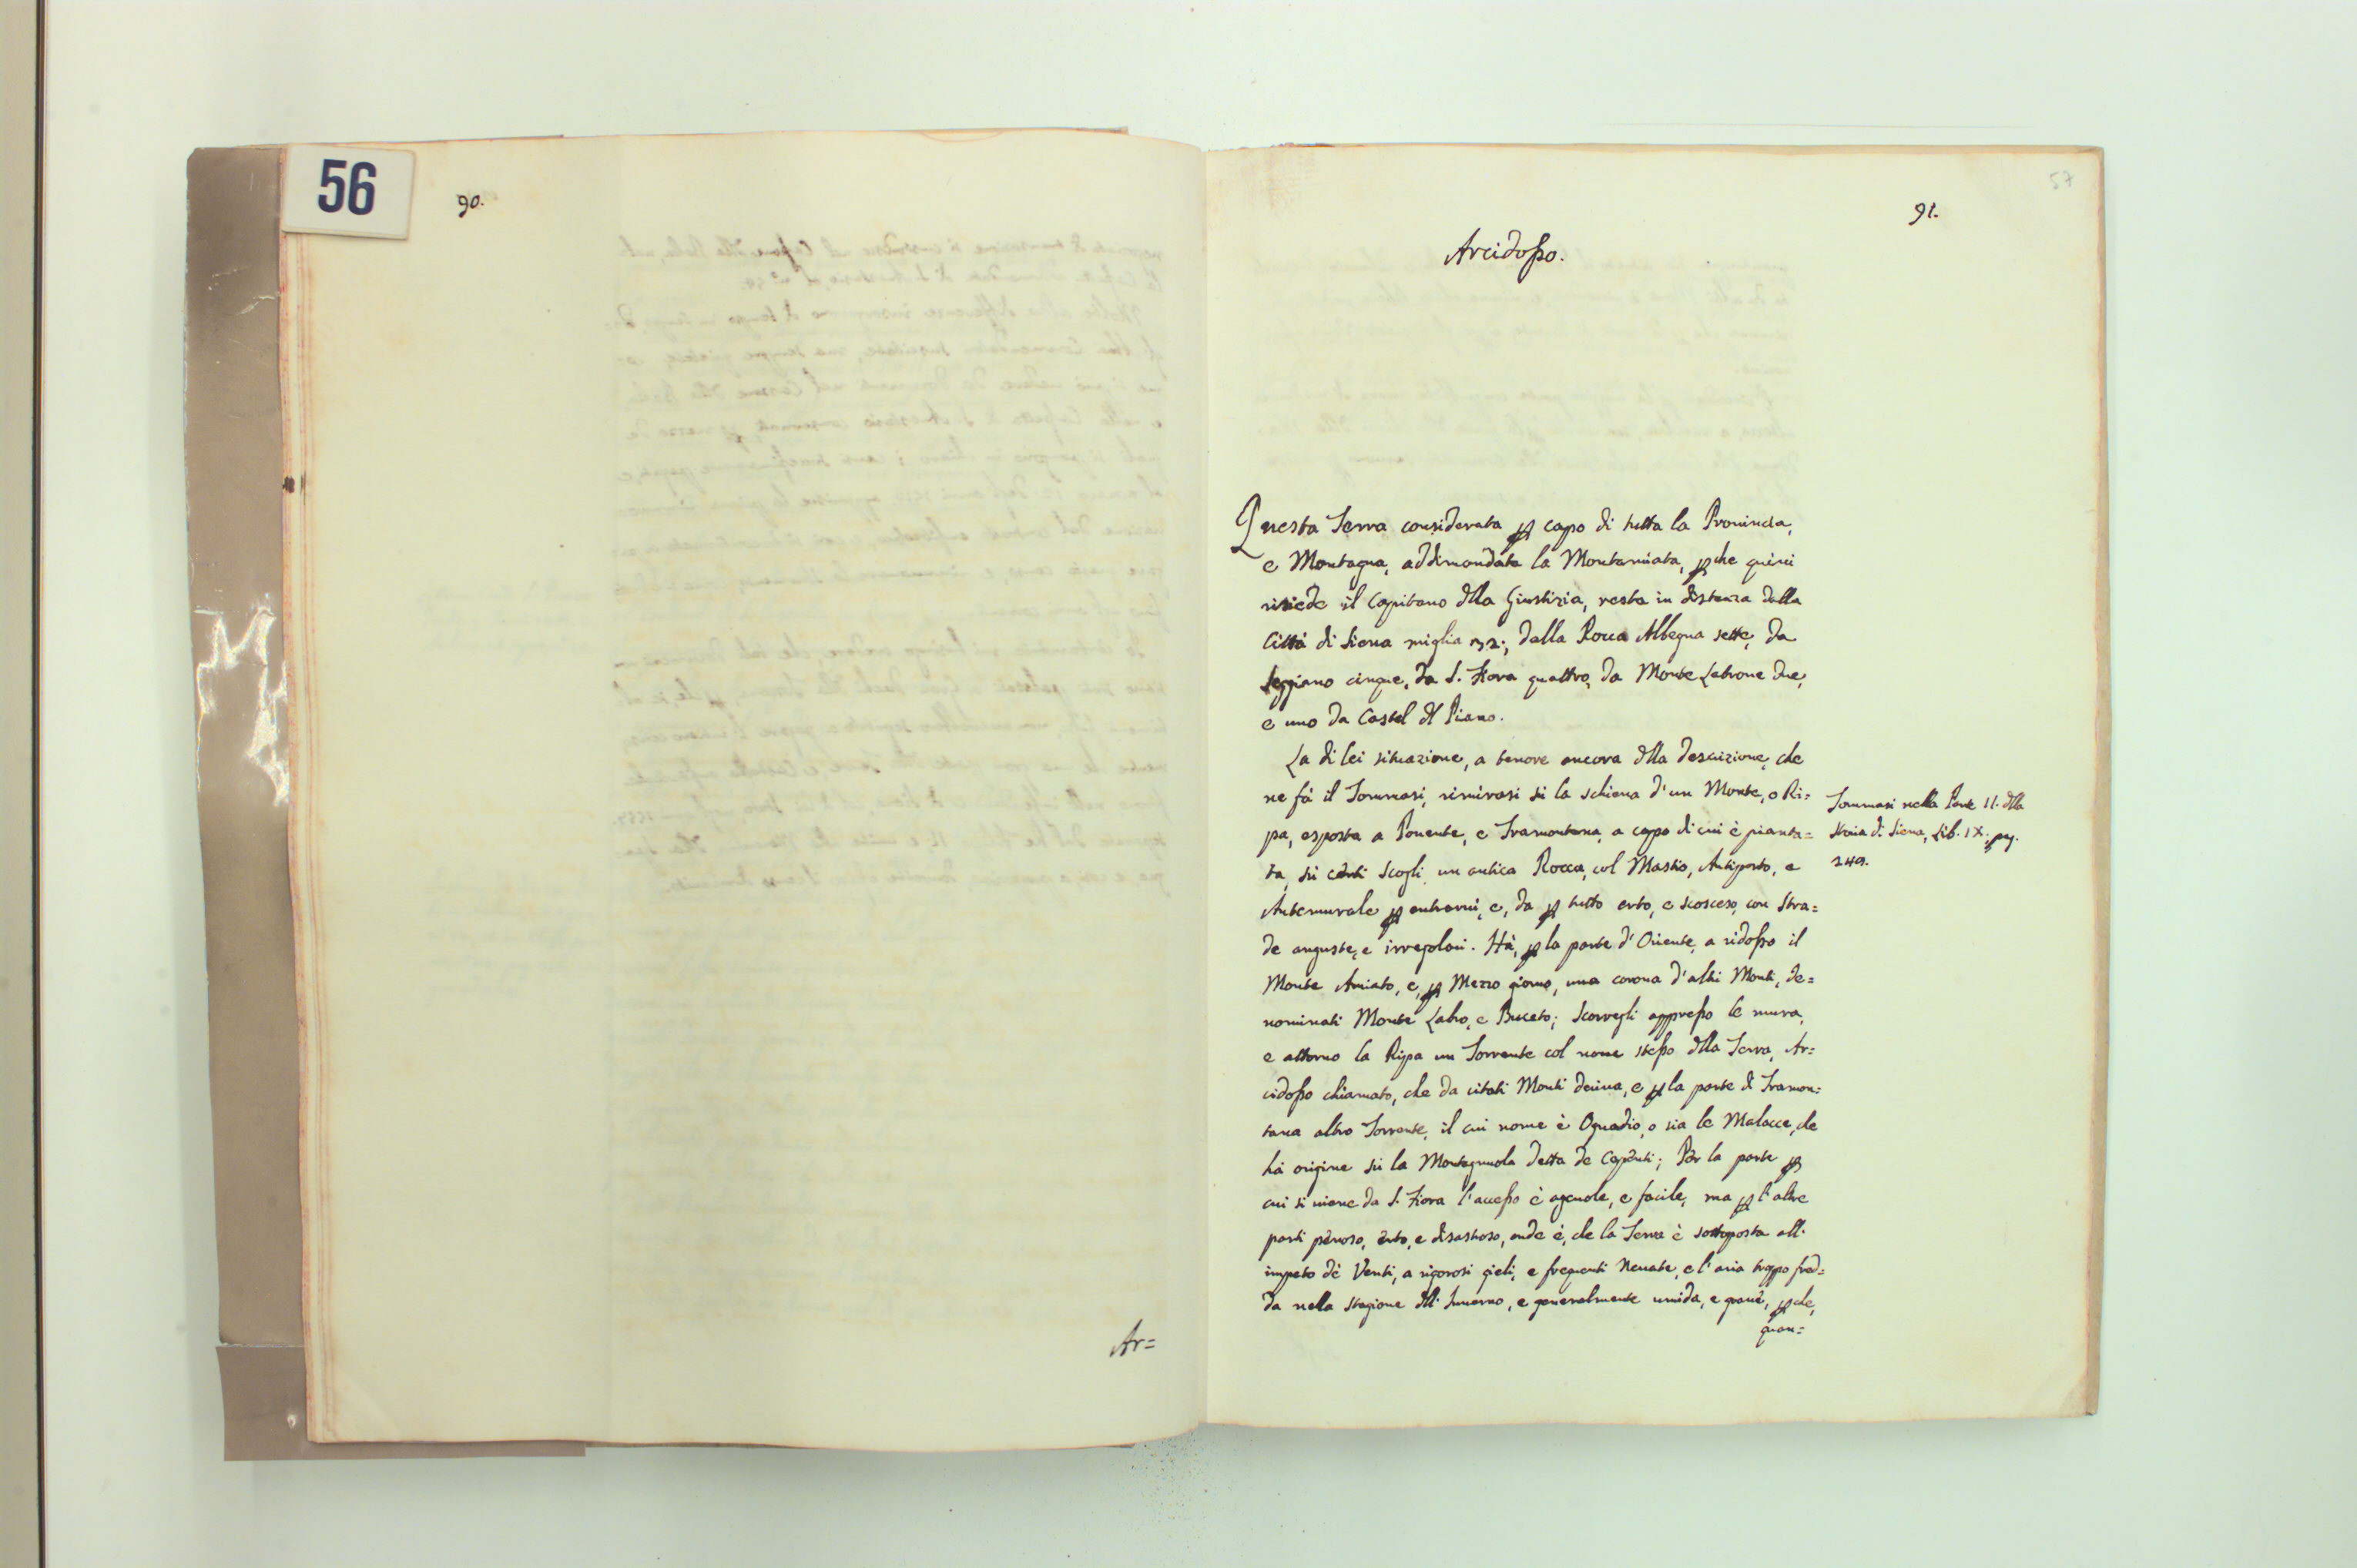 56
90.
Ar=
57
91.
Arcidosso.
Questa Terra considerata p capo di tutta la Provincia,
e Montagna, addimandata la Montamiata, pche quivi
risiede il Capitano dlla Giustizia, resta in distanza dalla
Città di Siena miglia 32., dalla Rocca Albegna sette, da
Seggiano cinque, da S. Fiora quattro, da Monte Latrone due,
e uno da Castel dl Piano.
La di lei situazione, a tenore ancora dlla descrizione, che
ne fà il Tommasi, rimirasi sù la schiena d'un Monte, o Ri=
pa, esposta a Ponente, e Tramontana, a capo di cui è pianta=
ta, sù certi Scogli, un antica Rocca, col Mastio, Antiporto, e
Antemurale p entrarvi, e, da p tutto erto, e scosceso, con Stra=
de anguste, e irregolari. Hà, p la parte d'Oriente, a ridosso il
Monte Amiato, e, p Mezzo giorno, una corona d'altri Monti, de=
nominati Monte Labro, e Buceto; Scorregli appresso le mura,
e attorno la Ripa un Torrente col nome stesso dlla Terra, Ar=
cidosso chiamato, che da citati Monti deriva, e p la parte di Tramon=
tana altro Torrente, il cui nome è Ognadio, o sia le Malacce, che
hà origine sù la Montagnuola detta de ; Per la parte p
cui si viene da S. Fiora l'accesso è agevole, e facile, ma p l'altre
parti penoso, erto, e disastroso, onde è, che la Terra è sottoposta all'
impeto dè Venti, a rigorosi gieli, e frequenti Nevate, e l'aria troppo fred=
da nella stagione dll'Inverno, e generalmente umida, e grave, pche,
quan=
Tommasi nella Parte II. dlla
Storia di Siena, Lib. IX. pag.
249.